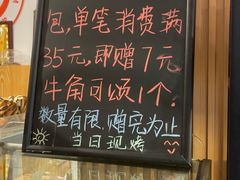 包,单笔消费满
35元,即赠7元
牛角可颂1个.
数量有限,赠完为止
当日现烤